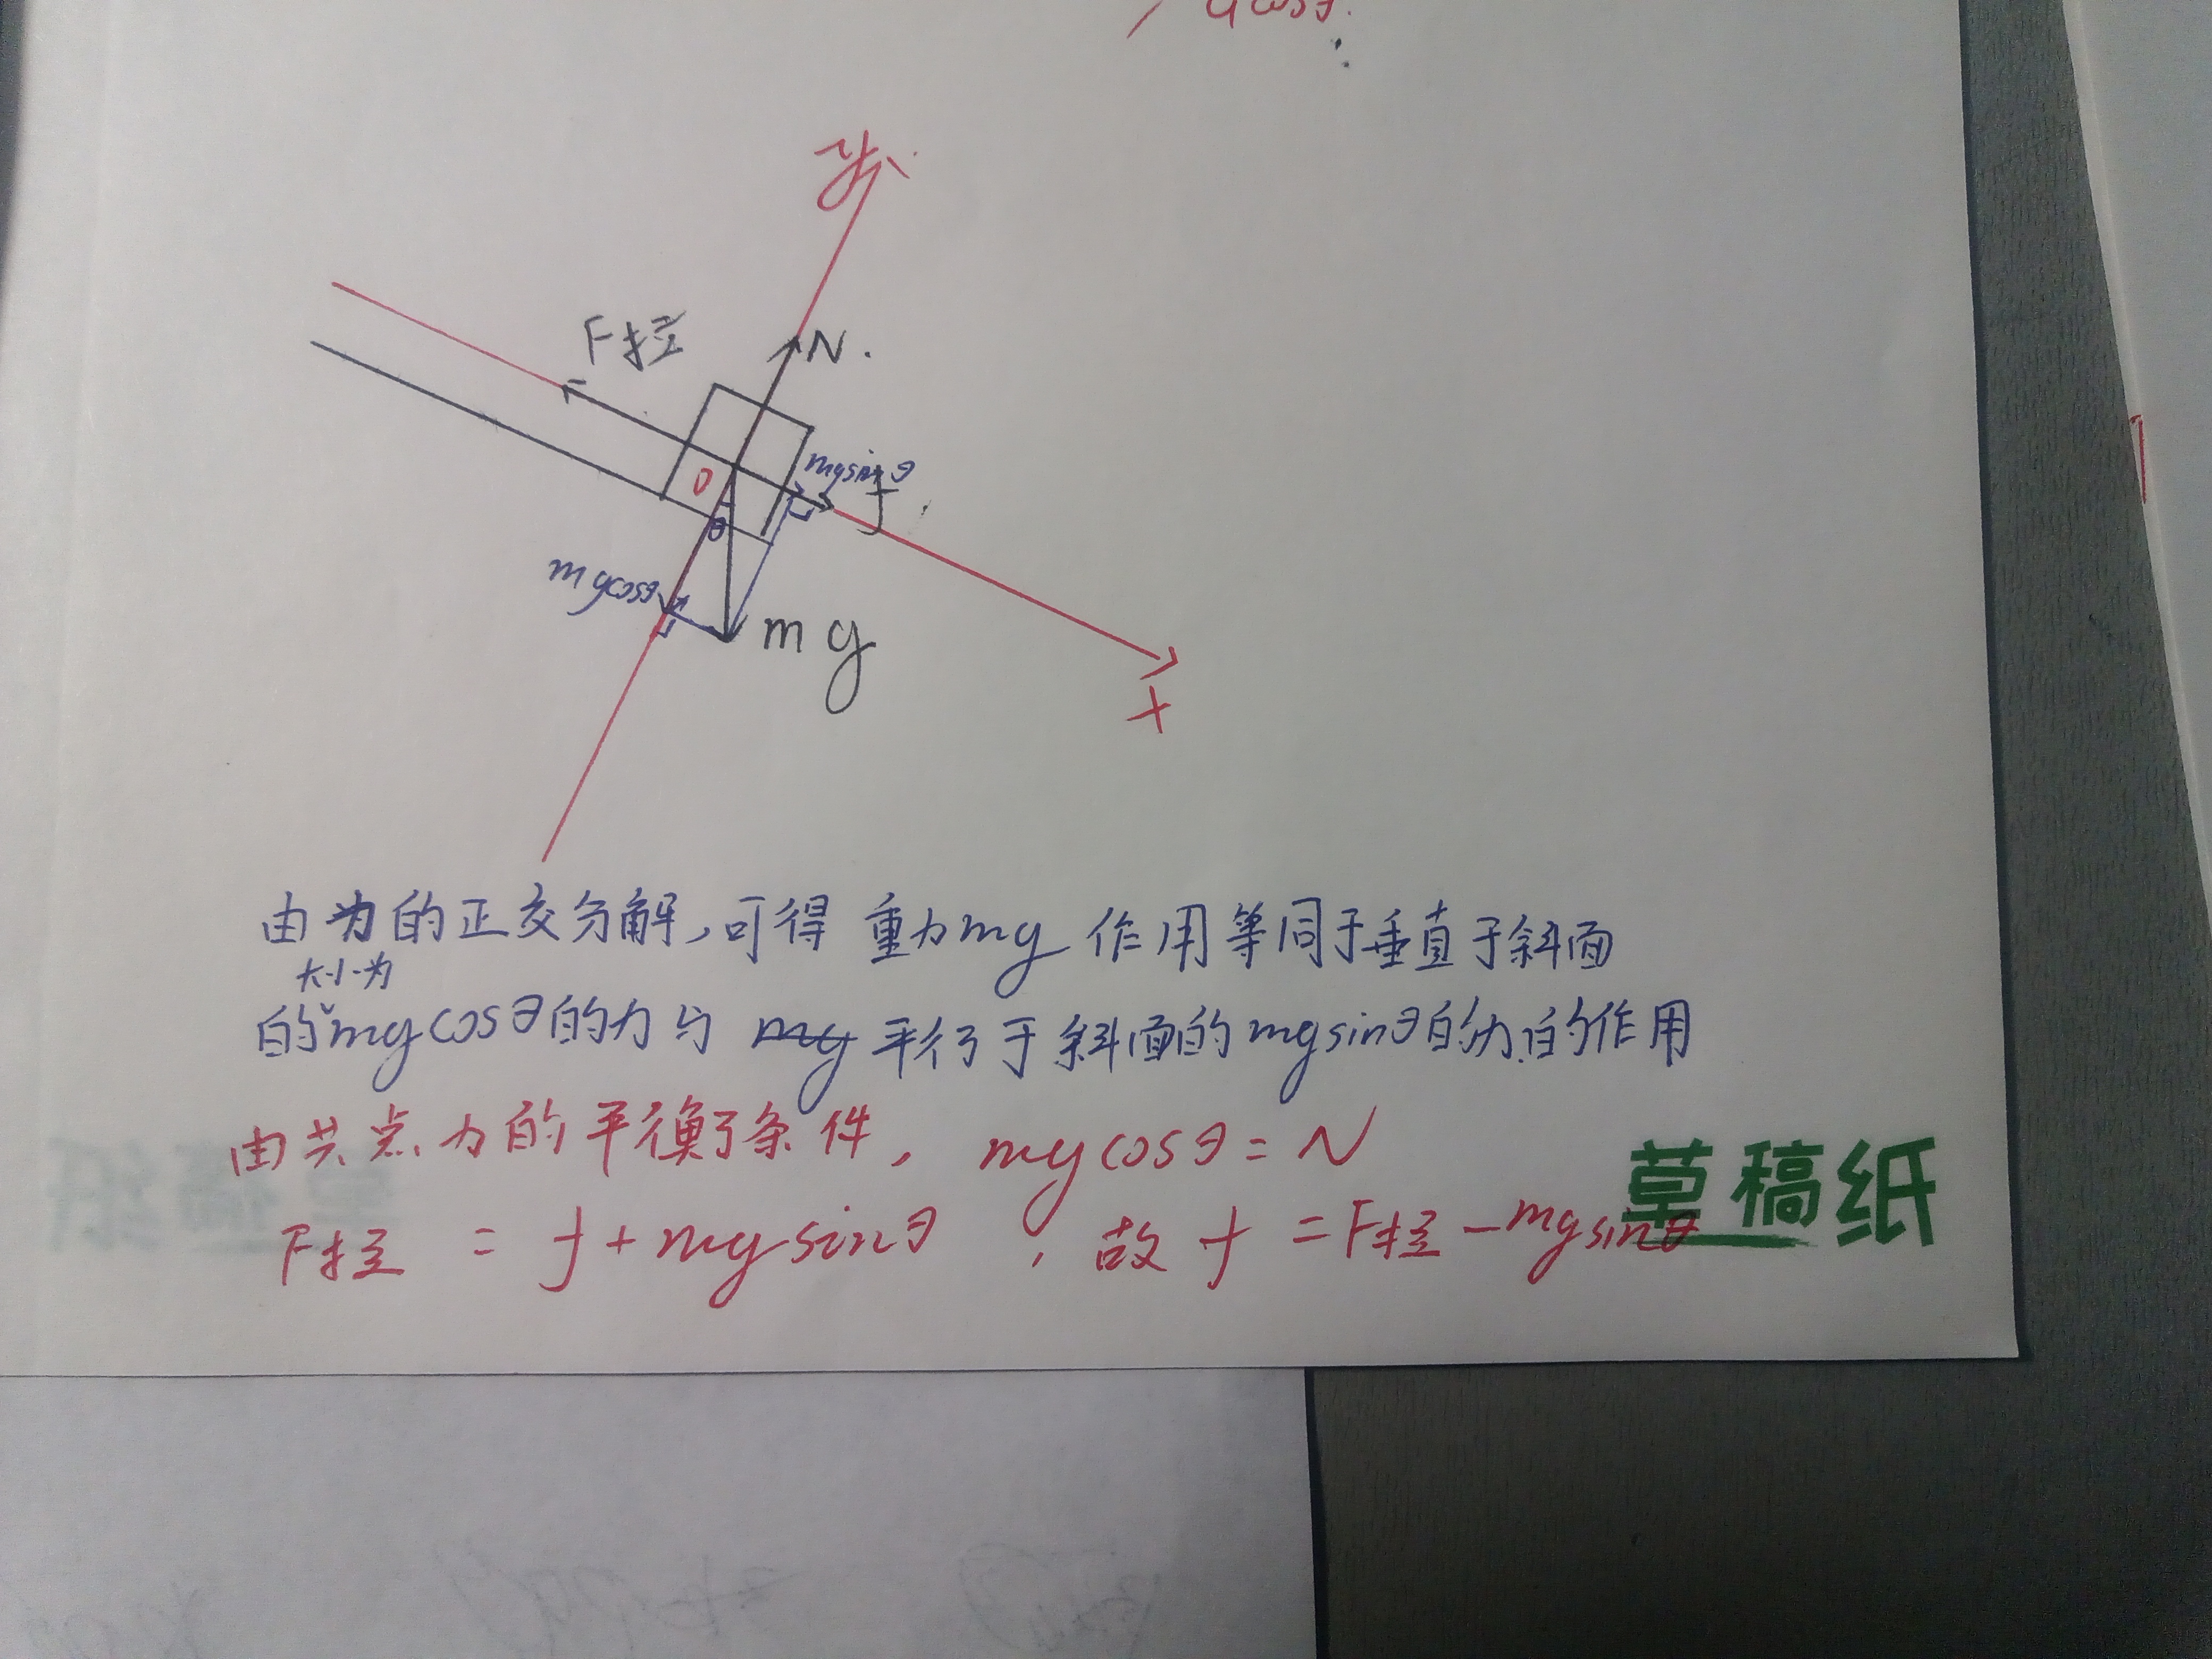 Gcosθ.
y
F拉
N.
mgsinθ
f
O
θ
mgcosθ
mg
x
由力的正交分解,可得 重力mg 作用等同于垂直于斜面
大小为
的mgcosθ的力与 mg 平行于斜面的mgsinθ的力的作用
由共点力的平衡条件, mgcosθ=N
F拉 = f+mgsinθ , 故 f =F拉-mgsinθ
草稿纸